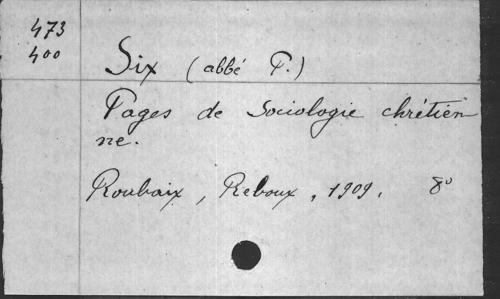 473
400
Six (abbé P.)
Pages de Sociologie chrétien
ne.
Roubaix, Reboux, 1909. 8°